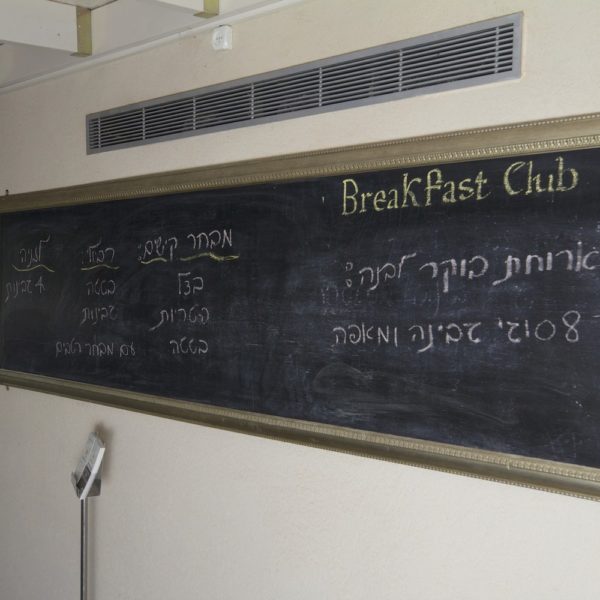 Breakfast Club
ארוחת בוקר לבנה:
8 סוגי גבינה ומאפה
מבחר קישים:
בצל
פטריות
בטטה
רביולי:
בטטה
גבינות
עם מבחר רטבים
לזניה
4 גבינות